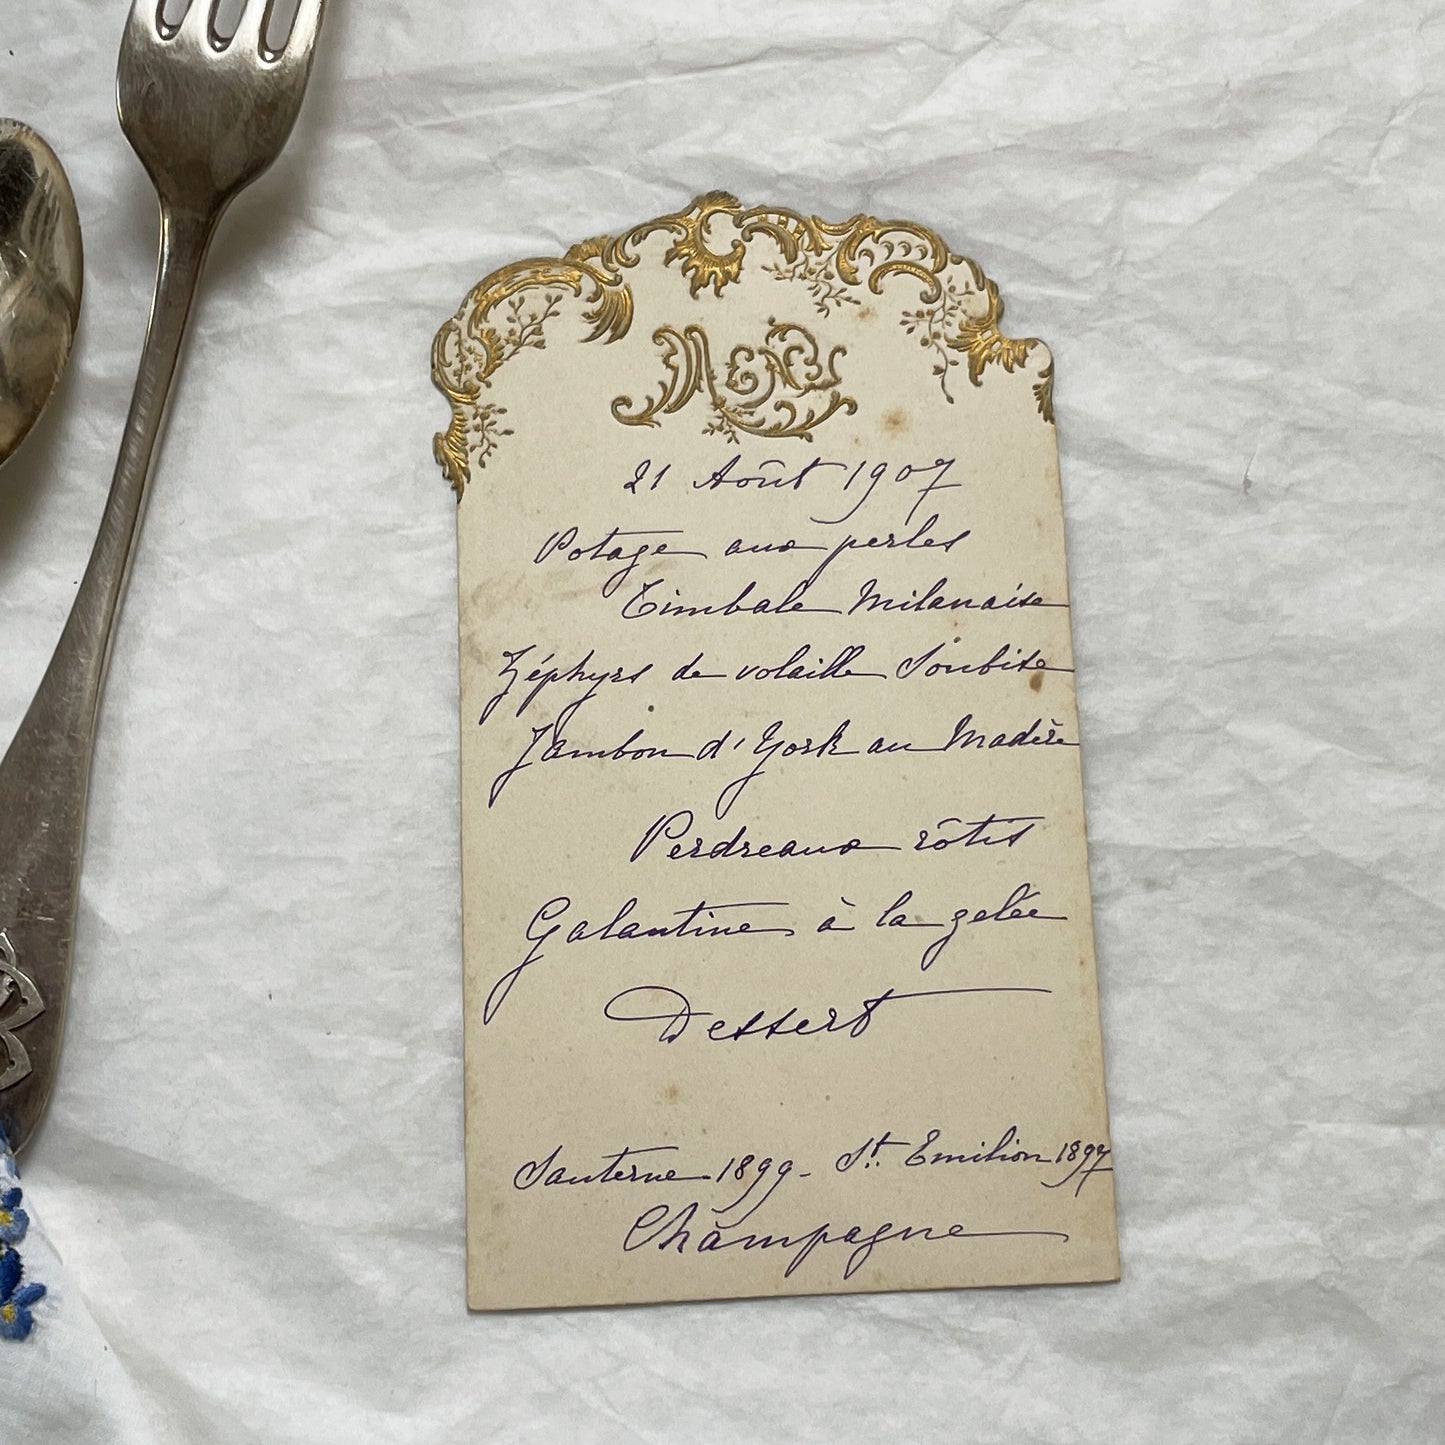 Menu
21 Août 1907
Potage aux perles
Timbale Milanaise
Zéphyrs de volaille Soubise
Jambon d'York au Madère
Perdreaux rôtis
Galantine à la gelée
Dessert
Sauterne 1899 - St. Emilion 1897
Champagne